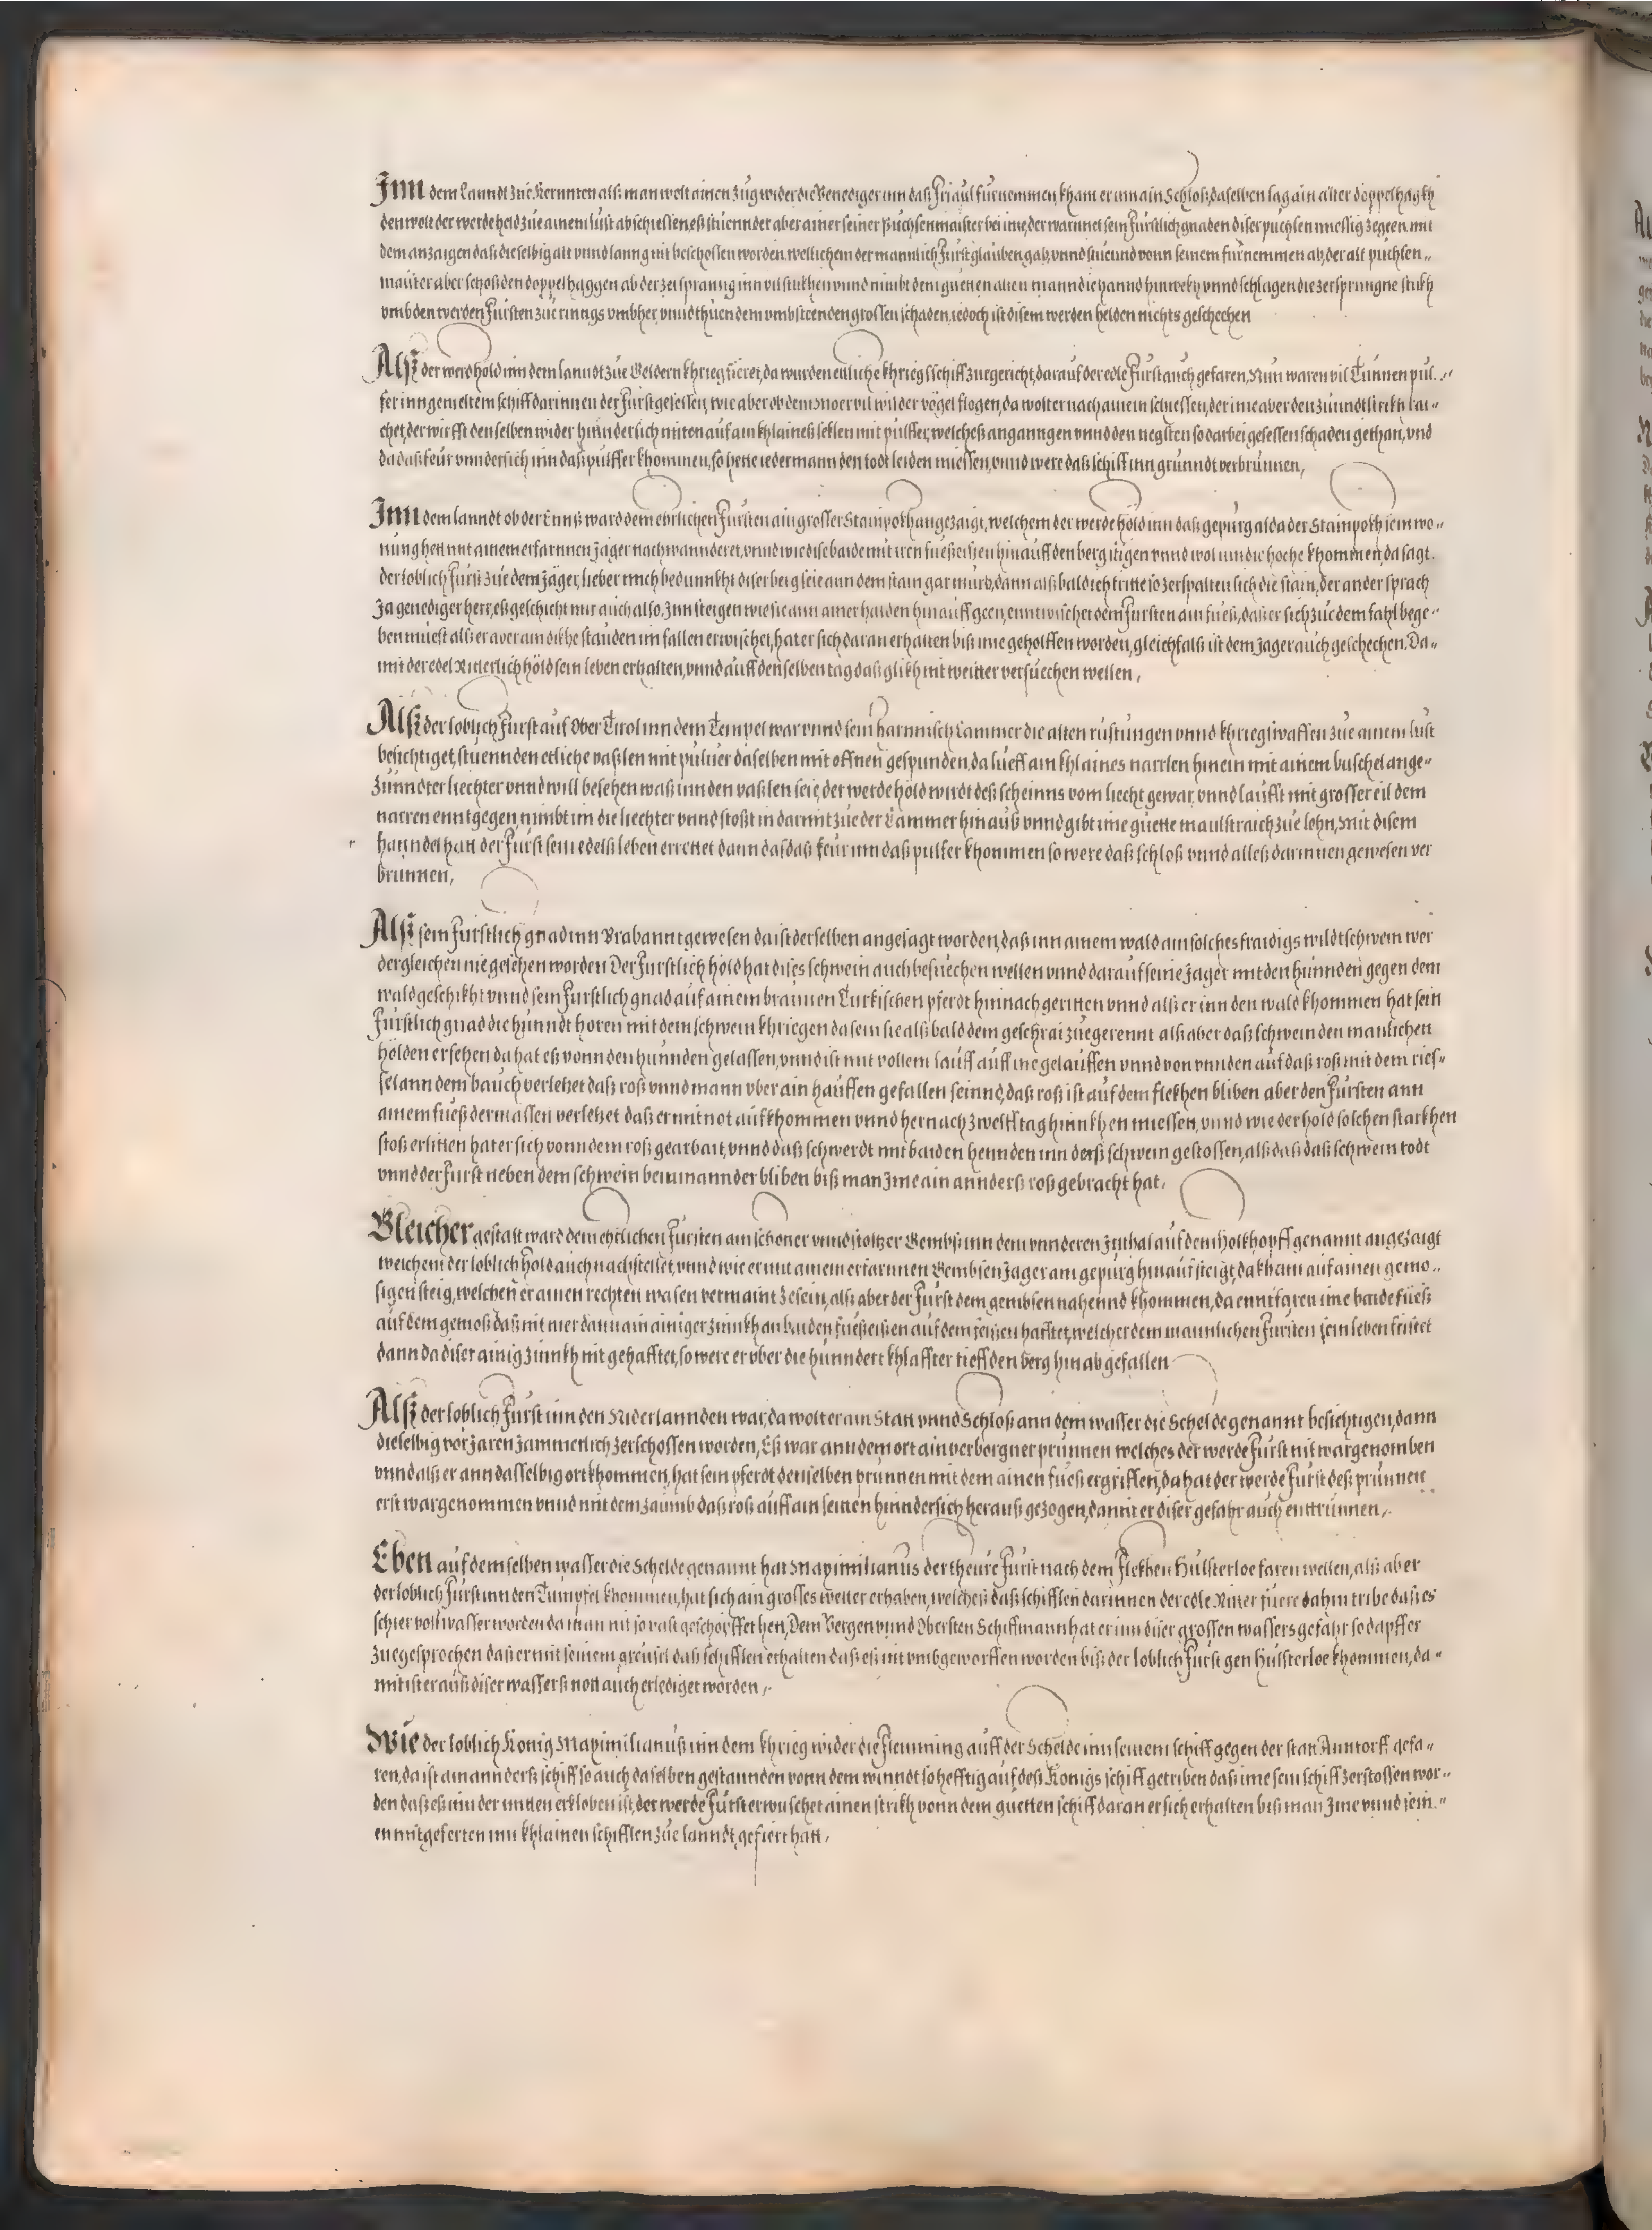 Inn dem lanndt zue Kernnten alß man wolt ainen zug wider die Venediger inn daß Friaul fürnemmen, kham er inn ain Schloß, daselben lag ain alter doppelhagkh
den wolt der werde held zue ainem lust abschiessen, eß stuennd er aber ainer seiner Buchsenmaister bei ime, der warnnet sein Fürstlich gnaden diser puchsen miessig zegeen, mit
dem anzaigen daß dieselbig alt vnnd lanng nit beschossen worden, wellichem der mannlich Fürst glauben gab, vnnd stuennd vonn seinem fürnemmen ab, der alt puchsen-
maister aber schoß den doppelhaggen ab der zerspranng inn vil stukhen vnnd nimbt dem gueten alten mann die hannd hinwekh vnnd schlagen die zersprungne stukh
vmb den werden Fürsten zue rinngs vmbher, vnnd thuen dem vmbsteenden grossen schaden, iedoch ist disem werden helden nichts geschechen
Alß der werd höld inn dem lanndt zue Geldern khrieg fieret, da wurden etliche khriegsschiff zuegericht, darauf der edle Fürst auch gefaren, Nun waren vil Tunnen pul-
fer inn gemeltem schiff darinnen der Fürst gesessen, wie aber ob dem Moer vil wilder vögel flogen, da wolt er nach ainem schiessen, der ime aber den zunndtstrikh rai-
chet, der wirfft denselben wider hinnderlich mitten auf ain khlaineß feßlen mit pulffer, welcheß anganngen vnnd den negsten so darbei gesessen schaden gethan, vnd
da daß feur vnndersich inn daß pulffer khommen, so hette iedermann den todt leiden miessen, vnnd were daß schiff inn grunndt verbrunnen,
Inn dem lanndt ob der Ennß ward dem ehrlichen Fürsten ain grosser Stainpokh angezaigt, welchem der werde höld inn daß gepurg alda der Stainpokh sein wo-
nung hett mit ainem erfarnnen Jäger nachwannderet, vnnd wie dise baide mit iren fuesseissen hinauff den berg stigen vnnd wol inn die hoche khommen, da sagt
der loblich Fürst zue dem Jäger, lieber mich bedunnkht diser berg seie ann dem stain gar murb, dann alß bald ich tritte so zerspalten sich die stain, der ander sprach
Ja genediger herr, eß geschicht mir auch also, Inn steigen wie sie ann ainer haiden hinauff geen, enntwischet dem Fürsten ain fueß, daß er sich zue dem fahl bege-
ben muest alß er aver ain dikhe stauden im fallen erwischet, hat er sich daran erhalten biß ime geholffen worden, gleichfalß ist dem Jager auch geschechen, Da-
mit der edel Ritterlich höld sein leben erhalten, vnnd auff denselben tag daß glikh nit weitter versuechen wellen,
Alß der loblich Furst auf Ober Tirol inn dem Tempel war vnnd sein harnnisch Cammer die alten rustungen vnnd khriegßwaffen zue ainem lust
besichtiget, stuennden etliche vaßlen mit puluer daselben mit offnen gespunden, da lueff ain khlaines narrlen hinein mit ainem buschel ange-
zunndter liechter vnnd will besehen waß inn den vaßlen seie, der werde höld wirdt deß scheinns vom liecht gewar, vnnd laufft mit grosser eil dem
narren enntgegen, nimbt im die liechter vnnd stoßt in darmit zue der Cammer hinauß vnnd gibt ime guette maulstraich zue lohn, Mit disem
hanndel hatt der Fürst sein edelß leben errettet dann da daß feur inn daß pulfer khommen so were daß schloß vnnd alleß darinnen gewesen ver
brunnen,
Alß sein Furstlich gnad inn Brabannt gewesen da ist derselben angesagt worden, daß inn ainem wald ain solches fraidigs wildtschwein wer
dergleichen nie gesehen worden Der Furstlich höld hat dises schwein auch besuechen wellen vnnd darauf seine Jager mit den hunnden gegen dem
wald geschikht vnnd sein Furstlich gnad auf ainem braunen Turkischen pferdt hinnach geritten vnnd alß er inn den wald khommen hat sein
Fürstlich gnad die hunndt hören mit dem schwein khriegen da sein sie alß bald dem geschrai zuegerennt alß aber daß schwein den manlichen
hölden ersehen da hat eß vonn den hunnden gelassen, vnnd ist mit vollem lauff auff ine gelauffen vnnd von vnnden auf daß roß mit dem ries-
sel ann dem bauch verletzet daß roß vnnd mann vber ain hauffen gefallen seinnd, daß roß ist auf dem flekhen bliben aber den Fürsten ann
ainem fueß dermassen verletzet daß er mit not aufkhommen vnnd hernach zwelff tag hinnkhen miessen, vnnd wie der höld solchen starkhen
stoß erlitten hat er sich vonn dem roß gearbait, vnnd daß schwerdt mit baiden hennden inn derß schwein gestossen, alß daß daß schwein todt
vnnd der Furst neben dem schwein beinannder bliben biß man Ime ain annderß roß gebracht hat,
Gleicher gestalt ward dem ehrlichen Fürsten ain schöner vnnd stoltzer Gembß inn dem vnnderen Inthal auf dem Holkhopff genannt angezaigt
welchem der loblich höld auch nachstellet, vnnd wie er mit ainem erfarnnen Gembsen Jager am gepurg hinauf steigt, da kham auf ainen gemo-
sigen steig, welchen er ainen rechten wasen vermaint zesein, alß aber der Fürst dem gembsen nahennd khommen, da enntfaren ime baide fueß
auf dem gemoß daß nit mer dann ain ainiger zinnkh an baiden fueßeissen auf dem felßen hafftet, welcher dem mannlichen Fursten sein leben fristet
dann da diser ainig zinnkh nit gehafftet, so were er vber die hunndert khlaffter tieff den berg hinab gefallen
Alß der loblich Furst inn den Niderlannden war, da wolt er ain Statt vnnd Schloß ann dem wasser die Schelde genannt besichtigen, dann
dieselbig vor Jaren Jammerlich zerschossen worden, Eß war ann dem ort ain verborgner prunnen welches der werde Furst nit wargenomben
vnnd alß er ann dasselbig ort khommen, hat sein pferdt denselben prunnen mit dem ainen fueß ergriffen, da hat der werde Furst deß prunnen
erst wargenommen vnnd mit dem zaumb daß roß auff ain seitten hinndersich herauß gezogen, damit er diser gefahr auch enttrunnen,
Eben auf demselben wasser die Schelde genannt hat Maximilianus der theure Furst nach dem Flekhen Hulsterloe faren wellen, alß aber
der loblich Furst inn den Tumpfel khommen, hat sich ain grosses wetter erhaben, welcheß daß schifflen darinnen der edle Ritter fuere dahin tribe daß es
schier voll wasser worden da man nit so vast geschöpffet hett, Dem Vergen vnnd Obersten Schiffmann hat er inn diser grossen wassers gefahr so dapffer
zuegesprochen daß er mit seinem greussel daß schifflen erhalten daß eß nit vmbgeworffen worden biß der loblich Furst gen Hulsterloe khommen, da-
mit ist er auß diser wasserß nott auch erlediget worden,
Wie der loblich König Maximilianuß inn dem khrieg wider die Flemming auff der Schelde inn seinem schiff gegen der statt Anntorff gefa-
ren, da ist ain annderß schiff so auch daselben gestannden vonn dem winndt so hefftig auf deß Königs schiff getriben daß ime sein schiff zerstossen wor-
den daß eß inn der mitten erkloben ist, der werde Fürst erwuschet ainen strikh vonn dem guetten schiff daran er sich erhalten biß man Ime vnnd sein-
en mitgeferten inn khlainen schifflen zue lanndt gefiert hatt,